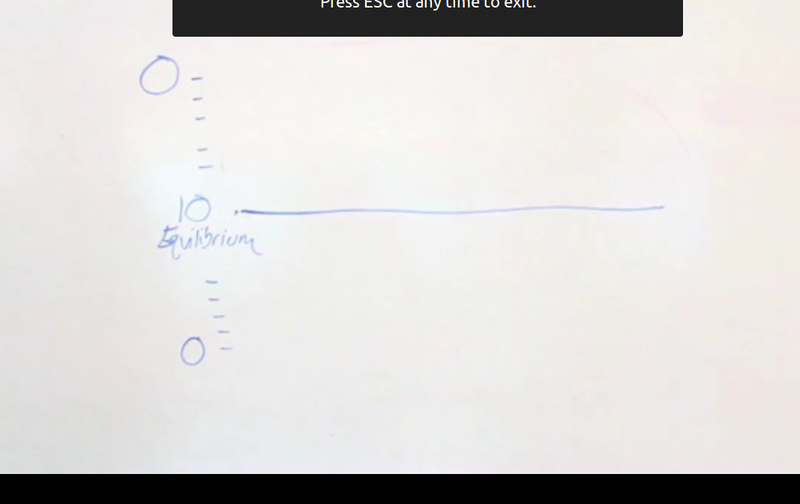 Press ESC at any time to exit.
0
10
Equilibrium
0